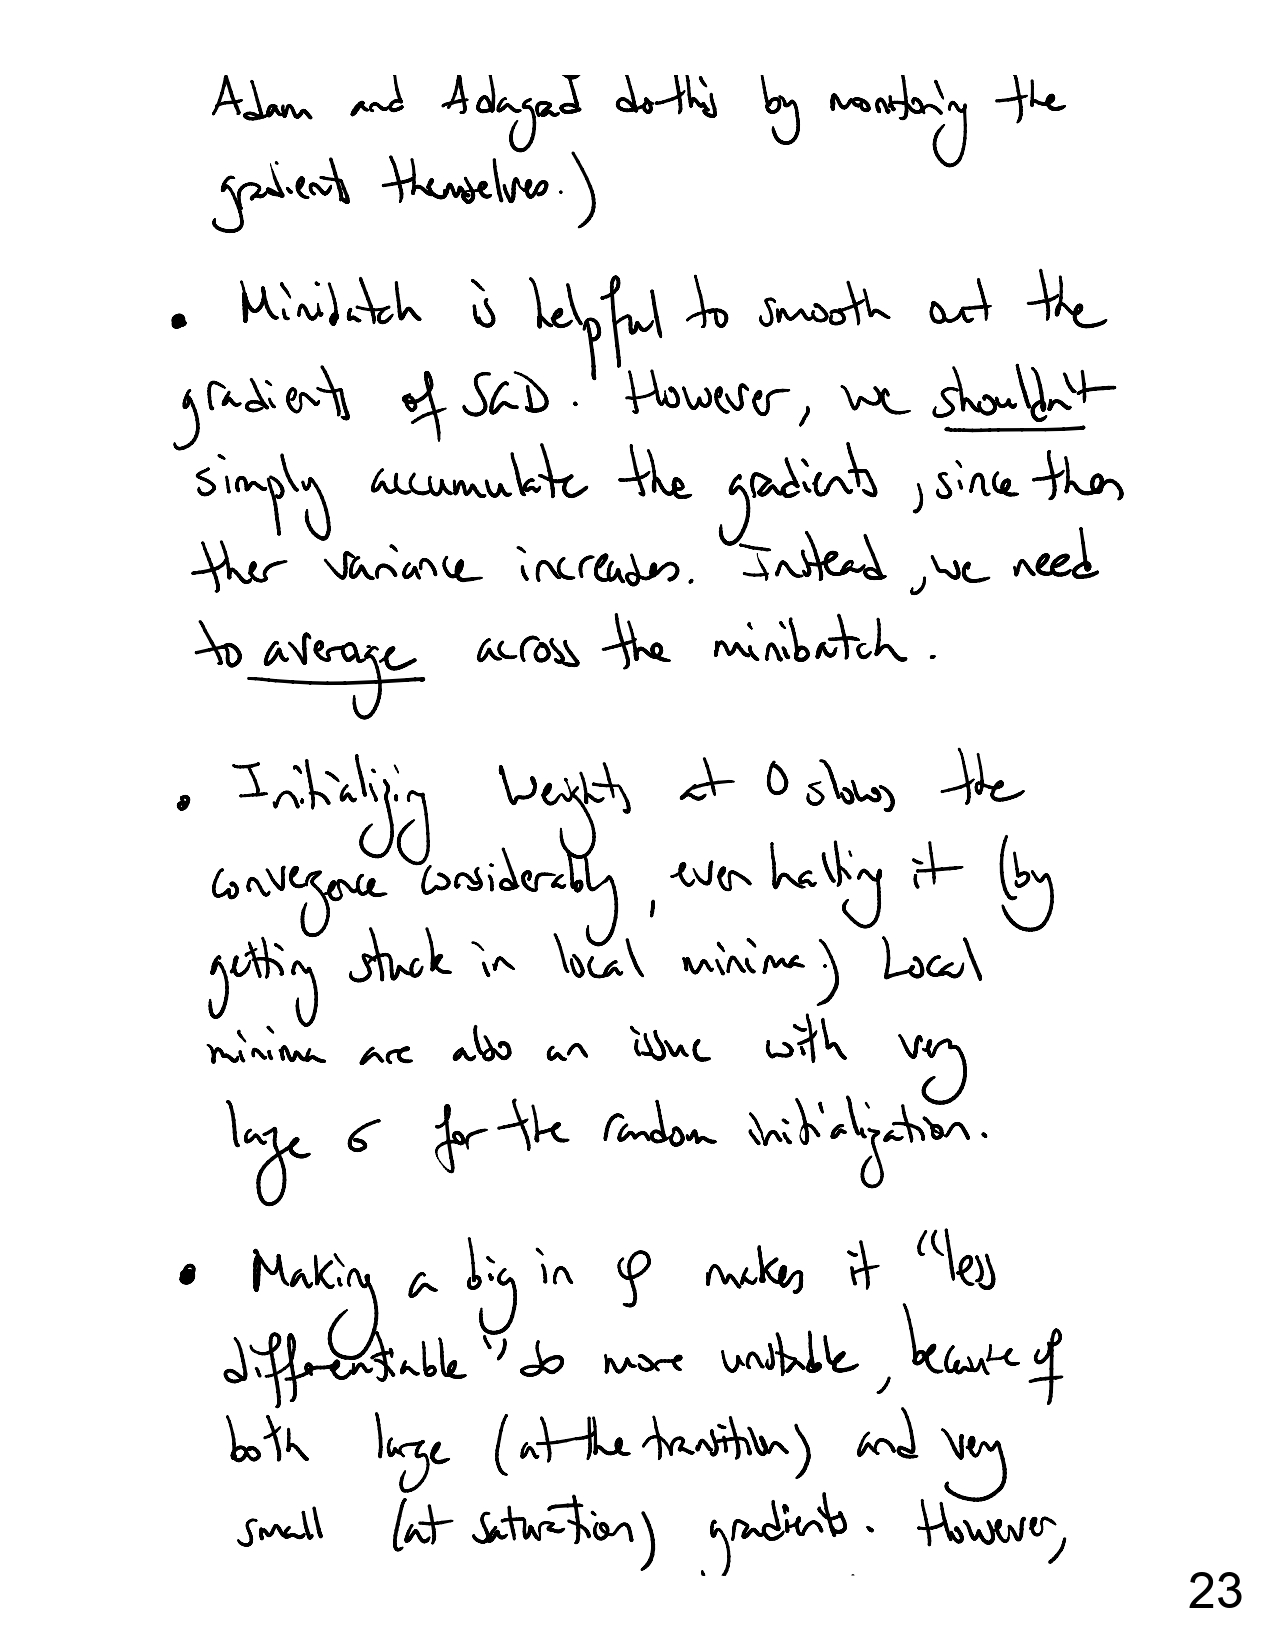 Adam and Adagad do this by monitoring the
gradients themselves.)
• Minibatch is helpful to smooth out the
gradients of SGD. However, we shouldn't
simply accumulate the gradients, since then
their variance increades. Instead, we need
to average across the minibatch.
• Initializing weights at 0 slows the
convergence considerably, even halting it (by
getting stuck in local minima.) Local
minima are also an issue with very
large σ for the random initialization.
• Making a big in φ makes it "less
differentiable" so more unstable, because of
both large (at the transition) and very
small (at saturation) gradients. However,
23